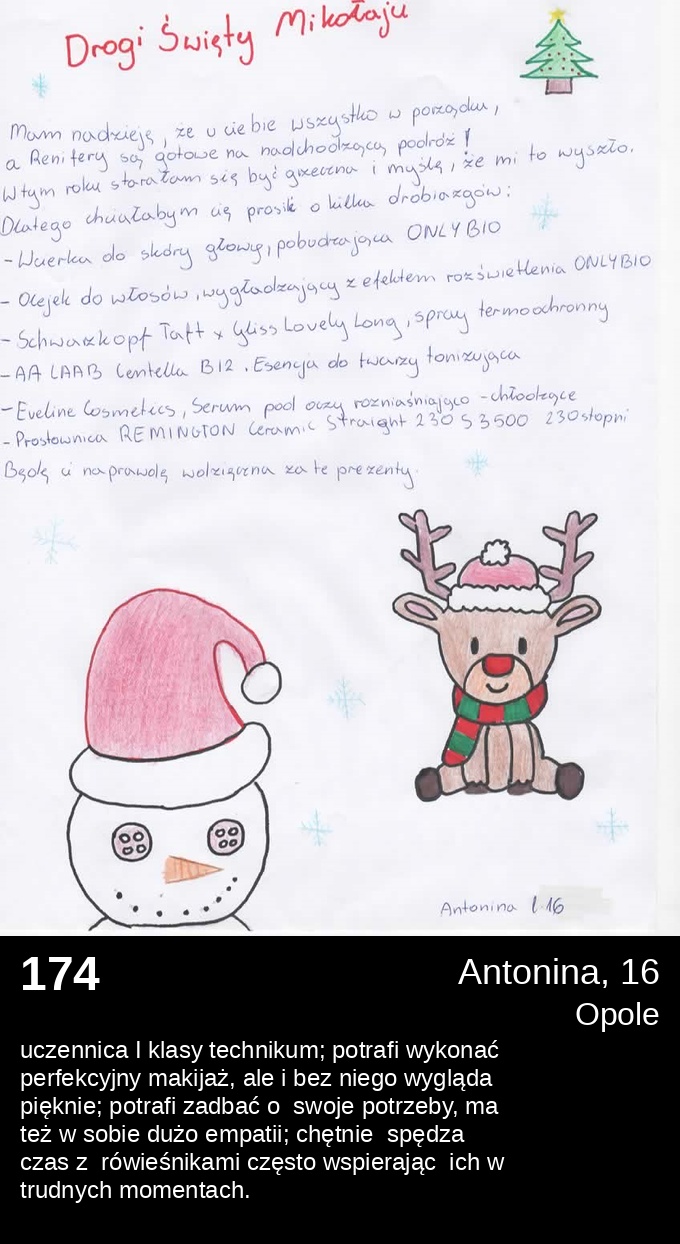 Drogi Święty Mikołaju
Mam nadzieję, że u ciebie wszystko w porządku,
a Renifery są gotowe na nadchodzącą podróż!
W tym roku starałam się być grzeczna i myślę, że mi to wyszło.
Dlatego chciałabym cię prosić o kilka drobiazgów:
- Wcierka do skóry głowy, pobudzająca ONLYBIO
- Olejek do włosów, wygładzający z efektem rozświetlenia ONLYBIO
- Schwarzkopf Taft x Gliss Lovely Long, spray termoochronny
- AA LAAB Centella B12. Esencja do twarzy tonizująca
- Eveline Cosmetics, Serum pod oczy rozniaśniająco - chłodzące
- Prostownica REMINGTON Ceramic Straight 230 S3500 230stopni
Będę ci naprawdę wdzięczna za te prezenty.
Antonina l.16
174
Antonina, 16
Opole
uczennica I klasy technikum; potrafi wykonać
perfekcyjny makijaż, ale i bez niego wygląda
pięknie; potrafi zadbać o swoje potrzeby, ma
też w sobie dużo empatii; chętnie spędza
czas z rówieśnikami często wspierając ich w
trudnych momentach.